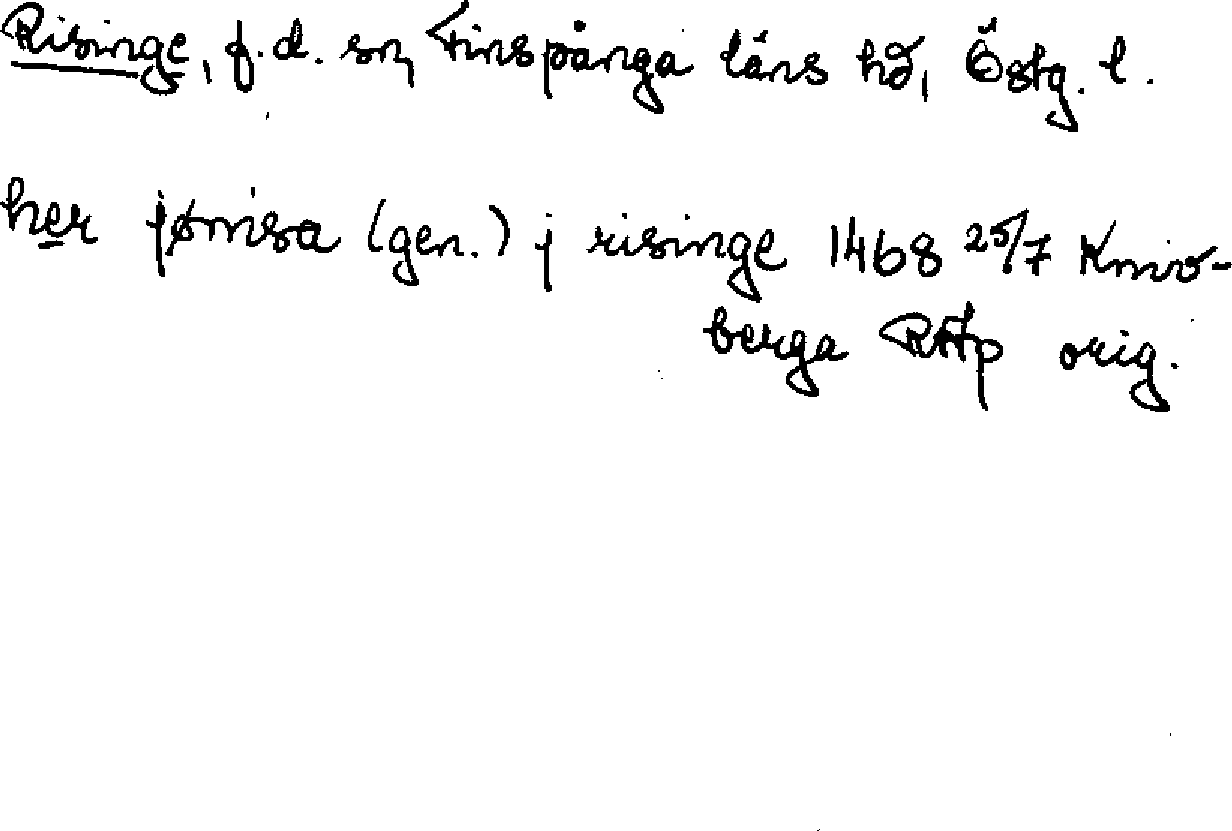 Risinge, f.d. sn, Finspånga läns hd, Östg. l.
her jømsa (gen.) j risinge 1468 25/7 Kmvs-
berga RAp orig.